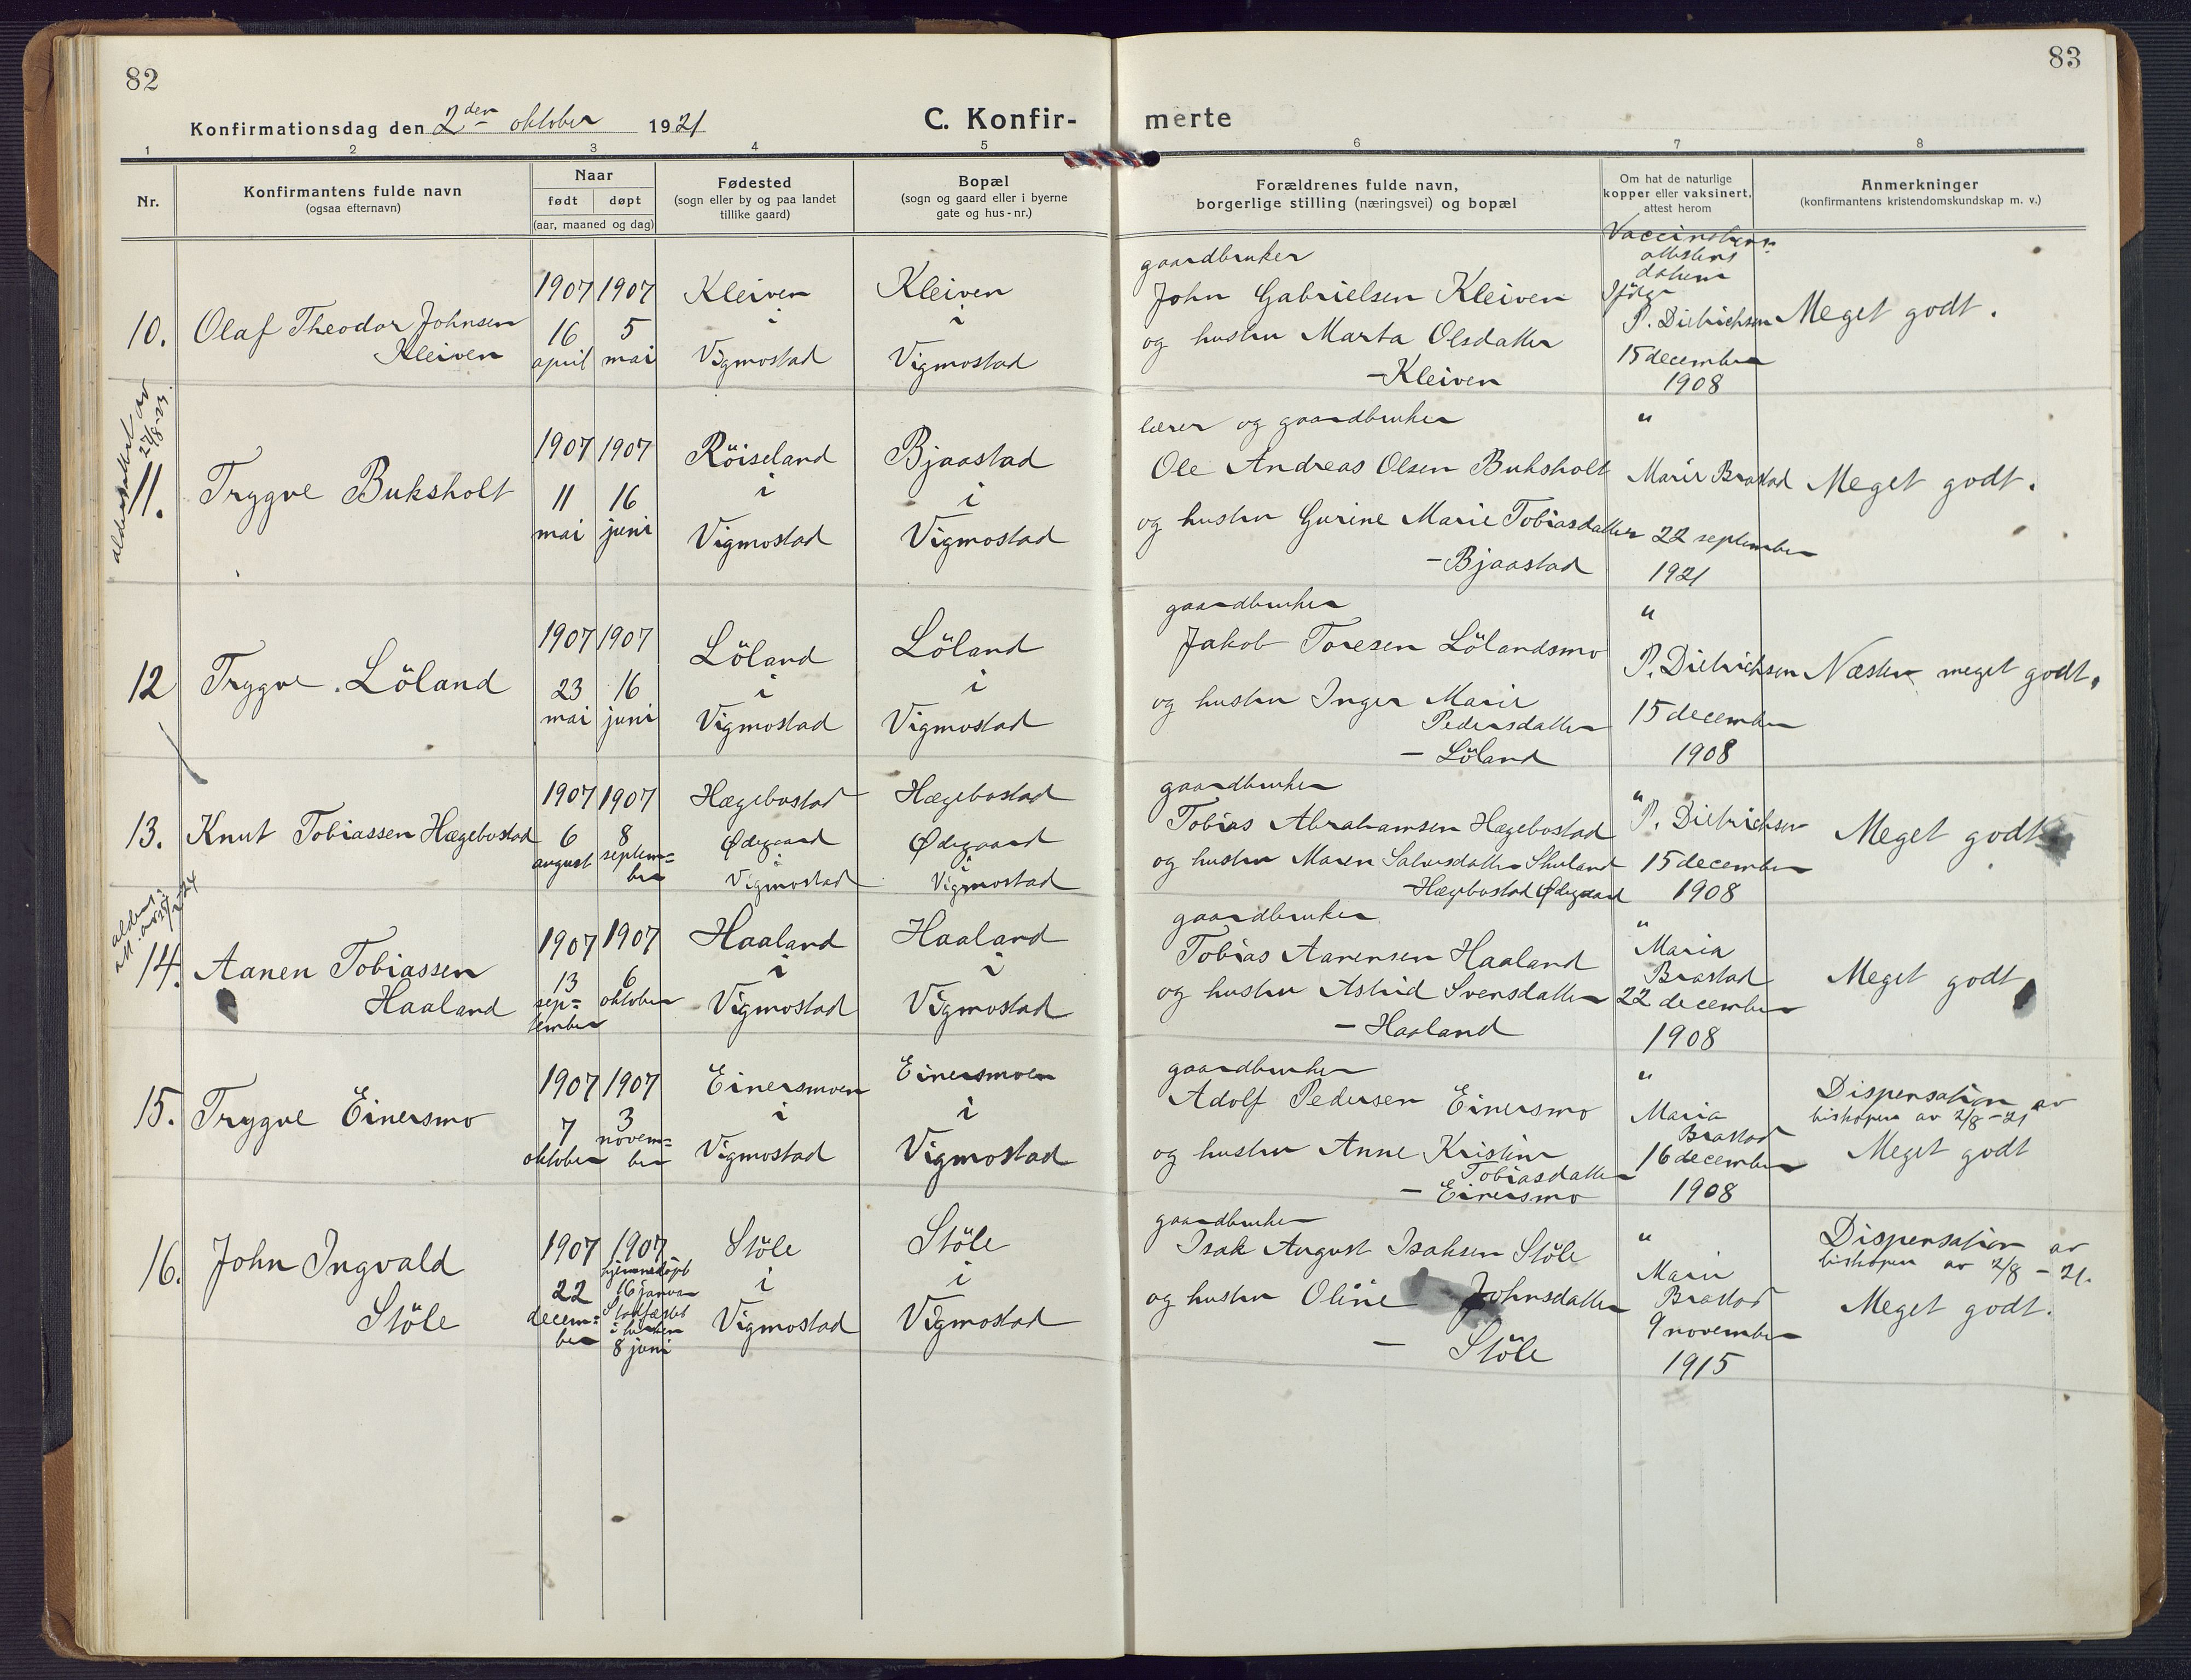 82
83
Konfirmationsdag den 2den oktober 1921
C. Konfir-
merte
1 2 3 4 5 6 7 8
Nr.
Konfirmantens fulde navn
(ogsaa efternavn)
Naar
født døpt
(aar, maaned og dag)
Fødested
(sogn eller by og paa landet
tillike gaard)
Bopæl
(sogn og gaard eller i byerne
gate og hus-nr.)
Forældrenes fulde navn,
borgerlige stilling (næringsvei) og bopæl
Om hat de naturlige
kopper eller vaksinert,
attest herom
Anmerkninger
(konfirmantens kristendomskundskap m. v.)
10.
Olaf Theodor Johnsen
Kleiven
1907
16
april
1907
5
mai
Kleiven
i
Vigmostad
Kleiven
i
Vigmostad
gaardbruker
John Gabrielsen Kleiven
og hustru Marta Olsdatter
- Kleiven
attestens
datum
P. Dietrichsen
15 december
1908
Meget godt.
27/8-23
11.
Trygve Buksholt
1907
11
mai
1907
16
juni
Röiseland
i
Vigmostad
Bjaastad
i
Vigmostad
lærer og gaardbruker
Ole Andreas Olsen Buksholt
og hustru Gurine Marie Tobiasdatter
- Bjaastad
"
Marie Brastad
22 september
1921
Meget godt.
12
Trygve Löland
1907
23
mai
1907
16
juni
Löland
i
Vigmostad
Löland
i
Vigmostad
gaardbruker
Jakob Toresen Lölandsmo
og hustru Inger Marie
Pedersdatter
- Löland
"
P. Dietrichsen
15 december
1908
Næsten meget godt.
13.
Knut Tobiassen Hægebostad
1907
6
august
1907
8
septem=
ber
Hægebostad
Ødegaard
i
Vigmostad
Hægebostad
Ødegaard
i
Vigmostad
gaardbruker
Tobias Abrahamsen Hægebostad
og hustru Maren Salvesdatter Skuland
- Hægebostad Ødegaard
"
P. Dietrichsen
15 december
1908
Meget godt
14.
Aanen Tobiassen
Haaland
1907
13
sep=
tember
1907
6
oktober
Haaland
i
Vigmostad
Haaland
i
Vigmostad
gaardbruker
Tobias Aanensen Haaland
og hustru Astrid Svensdatter
- Haaland
"
Maria
Brastad
22 december
1908
Meget godt
15.
Trygve Einersmo
1907
7
oktober
1907
3
novem=
ber
Einersmoen
i
Vigmostad
Einersmoen
i
Vigmostad
gaardbruker
Adolf Pedersen Einersmo
og hustru Anne Kristine
Tobiasdatter
- Einersmo
"
Maria
Brastad
16 december
1908
Dispensation av
biskopen av 2/8-21
Meget godt
16.
John Ingvald
Stöle
1907
22
decem=
ber
1907
hjemmedöpt
16 januar
Stadfæstet
i kirken
8 juni
Stöle
i
Vigmostad
Stöle
i
Vigmostad
gaardbruker
Isak August Isaksen Stöle
og hustru Oline Johnsdatter
- Stöle
"
Marie
Brastad
9 november
1915
Dispensation av
biskopen av 2/8-21.
Meget godt.